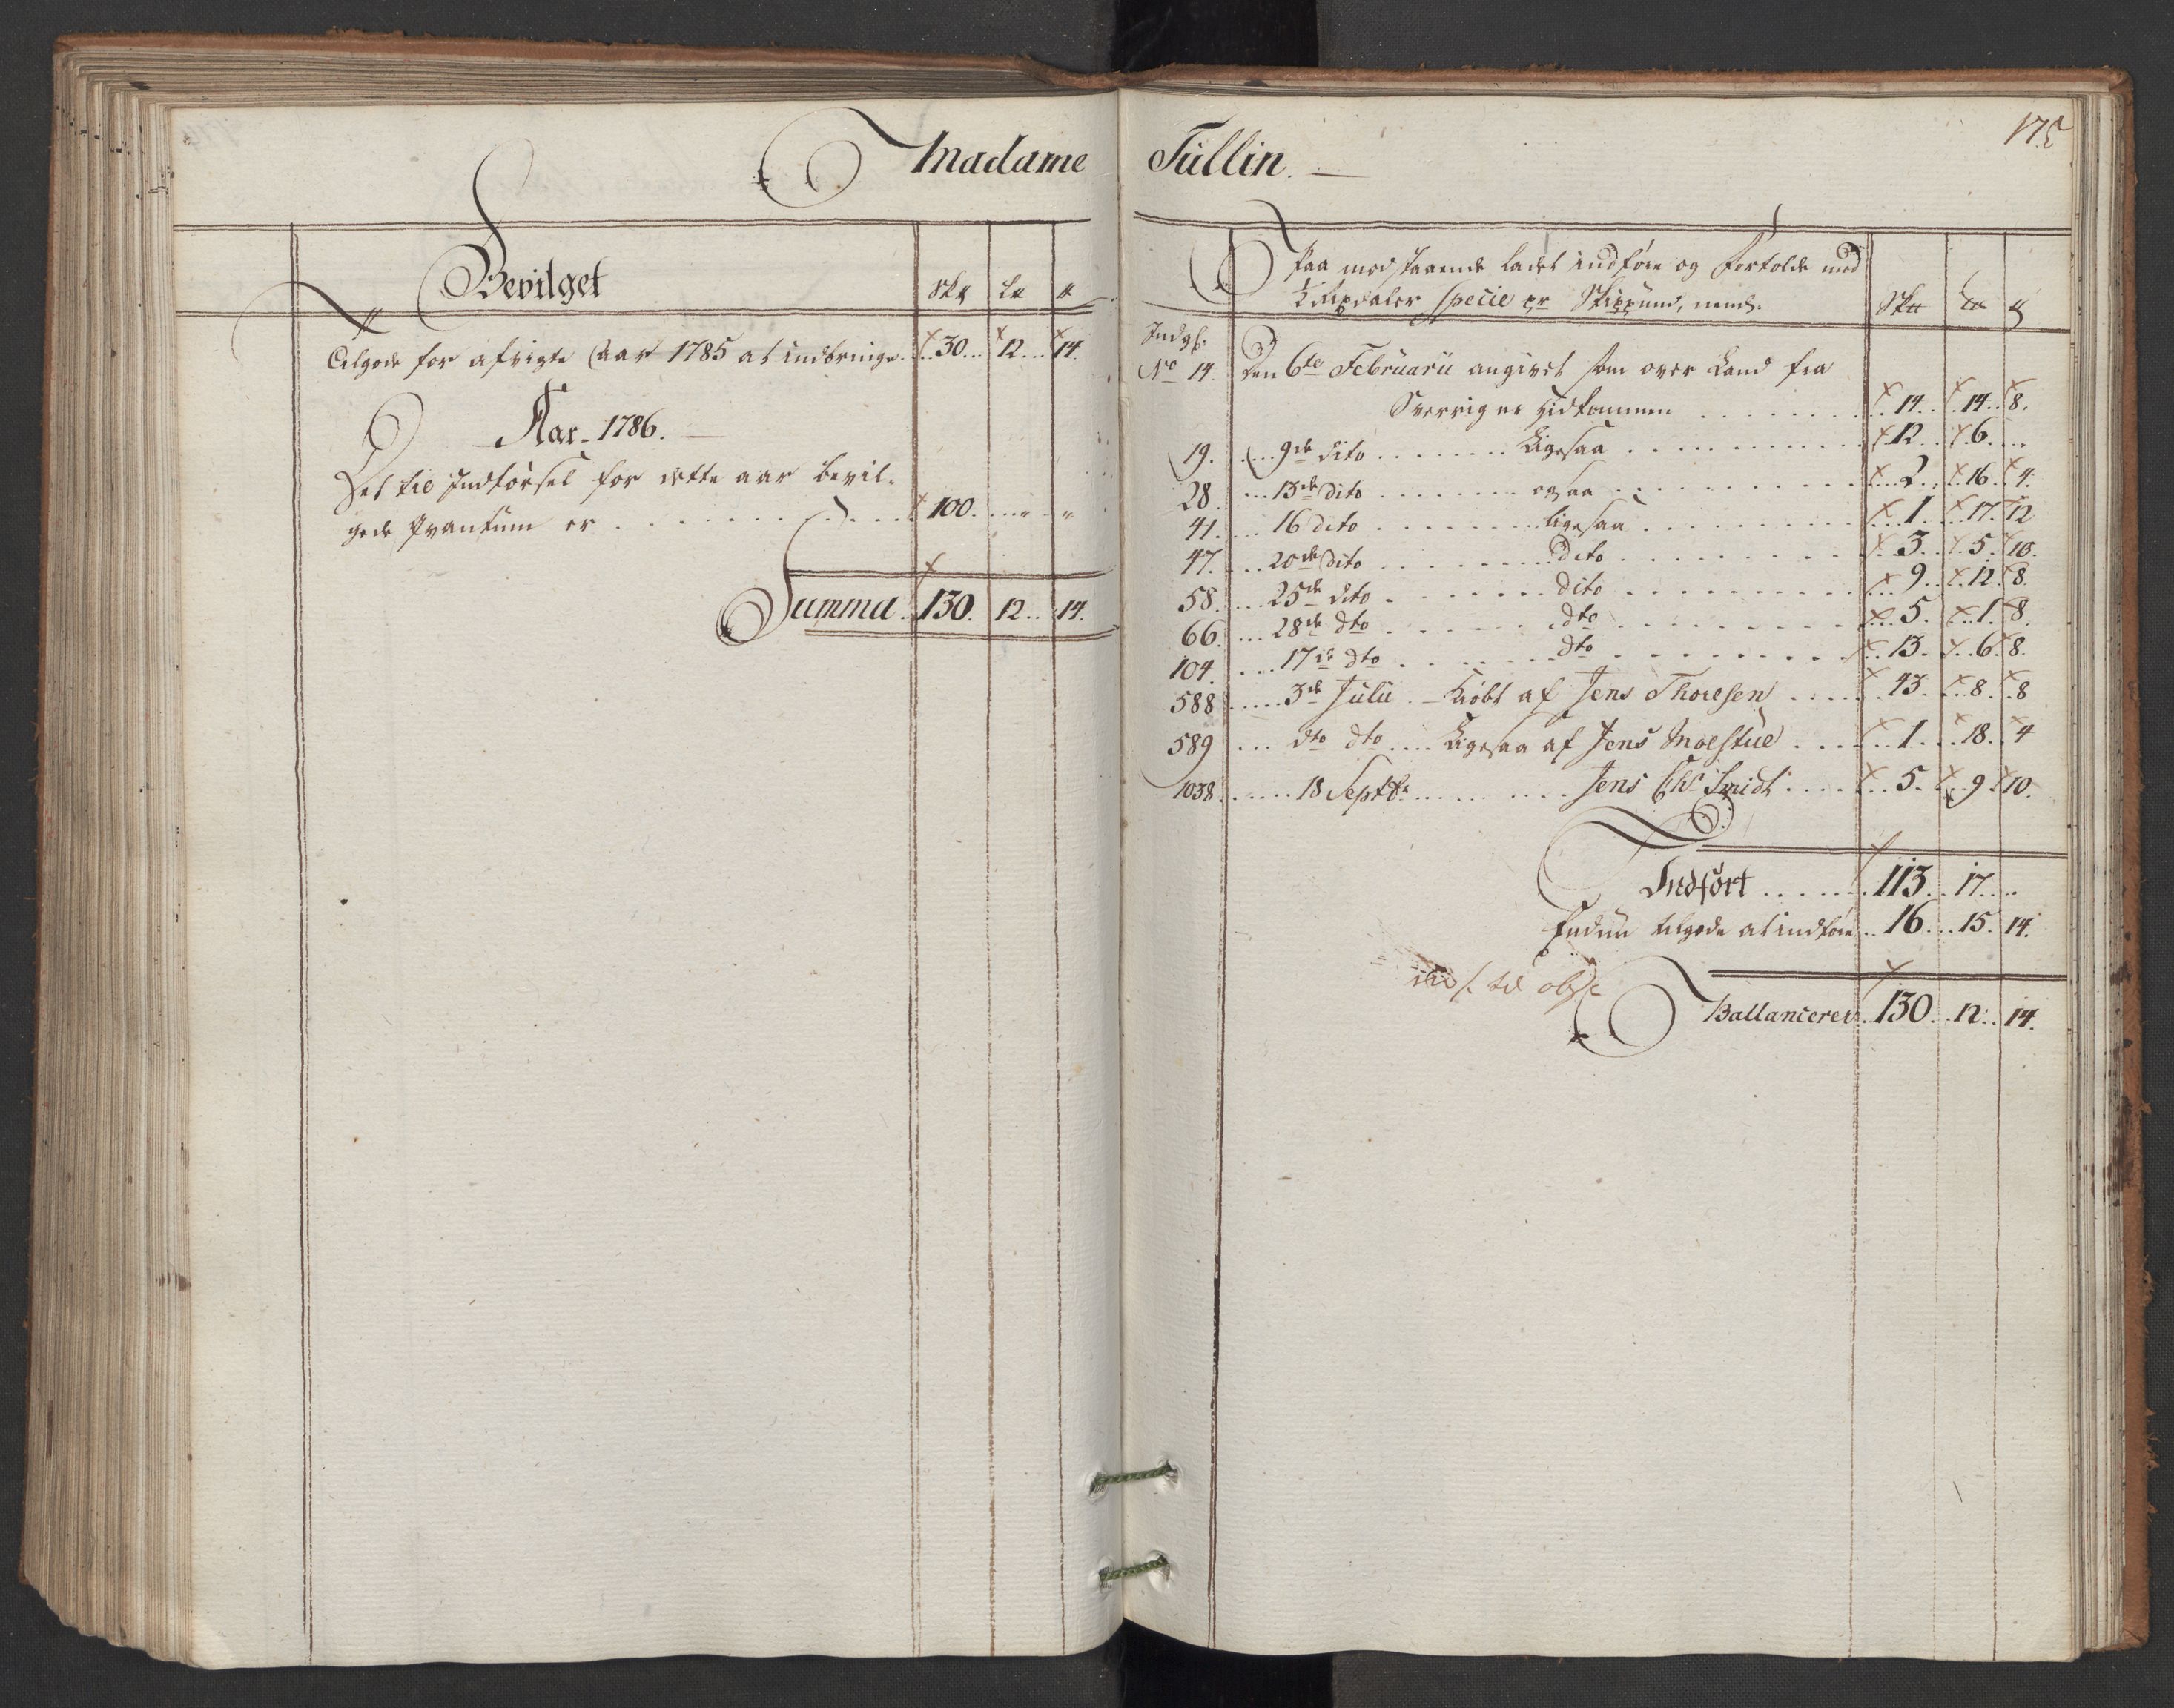 Madame Tullin.
175
Bevilget
Sk℔ L℔ ℔
Tilgode for afvigte Aar 1785 at indbringe 30 12 14
Aar 1786.
Det til Indførsel for dette aar bevil-
gede Qvantum er 100 " "
Summa 130. 12. 14.
Paa modstaaende ladet indføre og fortolde med
Rixdaler specie pr Skippund, nemlig. Sk℔ L℔ ℔
Indgs:
No 14. Den 6te Februarii angivet som over Land fra
Sverrig er hidkommen 14. 14. 8.
19. 9de dito Ligesaa 12. 6. "
28. 13de dito ogsaa 2. 16. 4.
41. 16 dito ligesaa 1. 17. 12
47. 20de dito dito 3. 5. 10.
58. 25de dito dito 9. 12. 8.
66. 28de dto dto 5. 1. 8.
104. 17de dto dto 13. 6. 8.
588. 3de Julii Kiøbt af Jens Thoresen 43. 8. 8
589 dto dto Ligesaa af Jens Moestue 1. 18. 4
1038. 18 Septbr Jens Chr Smidt 5. 9. 10.
Indført 113. 17. "
Endnu tilgode at indføre 16. 15. 14.
Ballancerer 130. 12. 14.